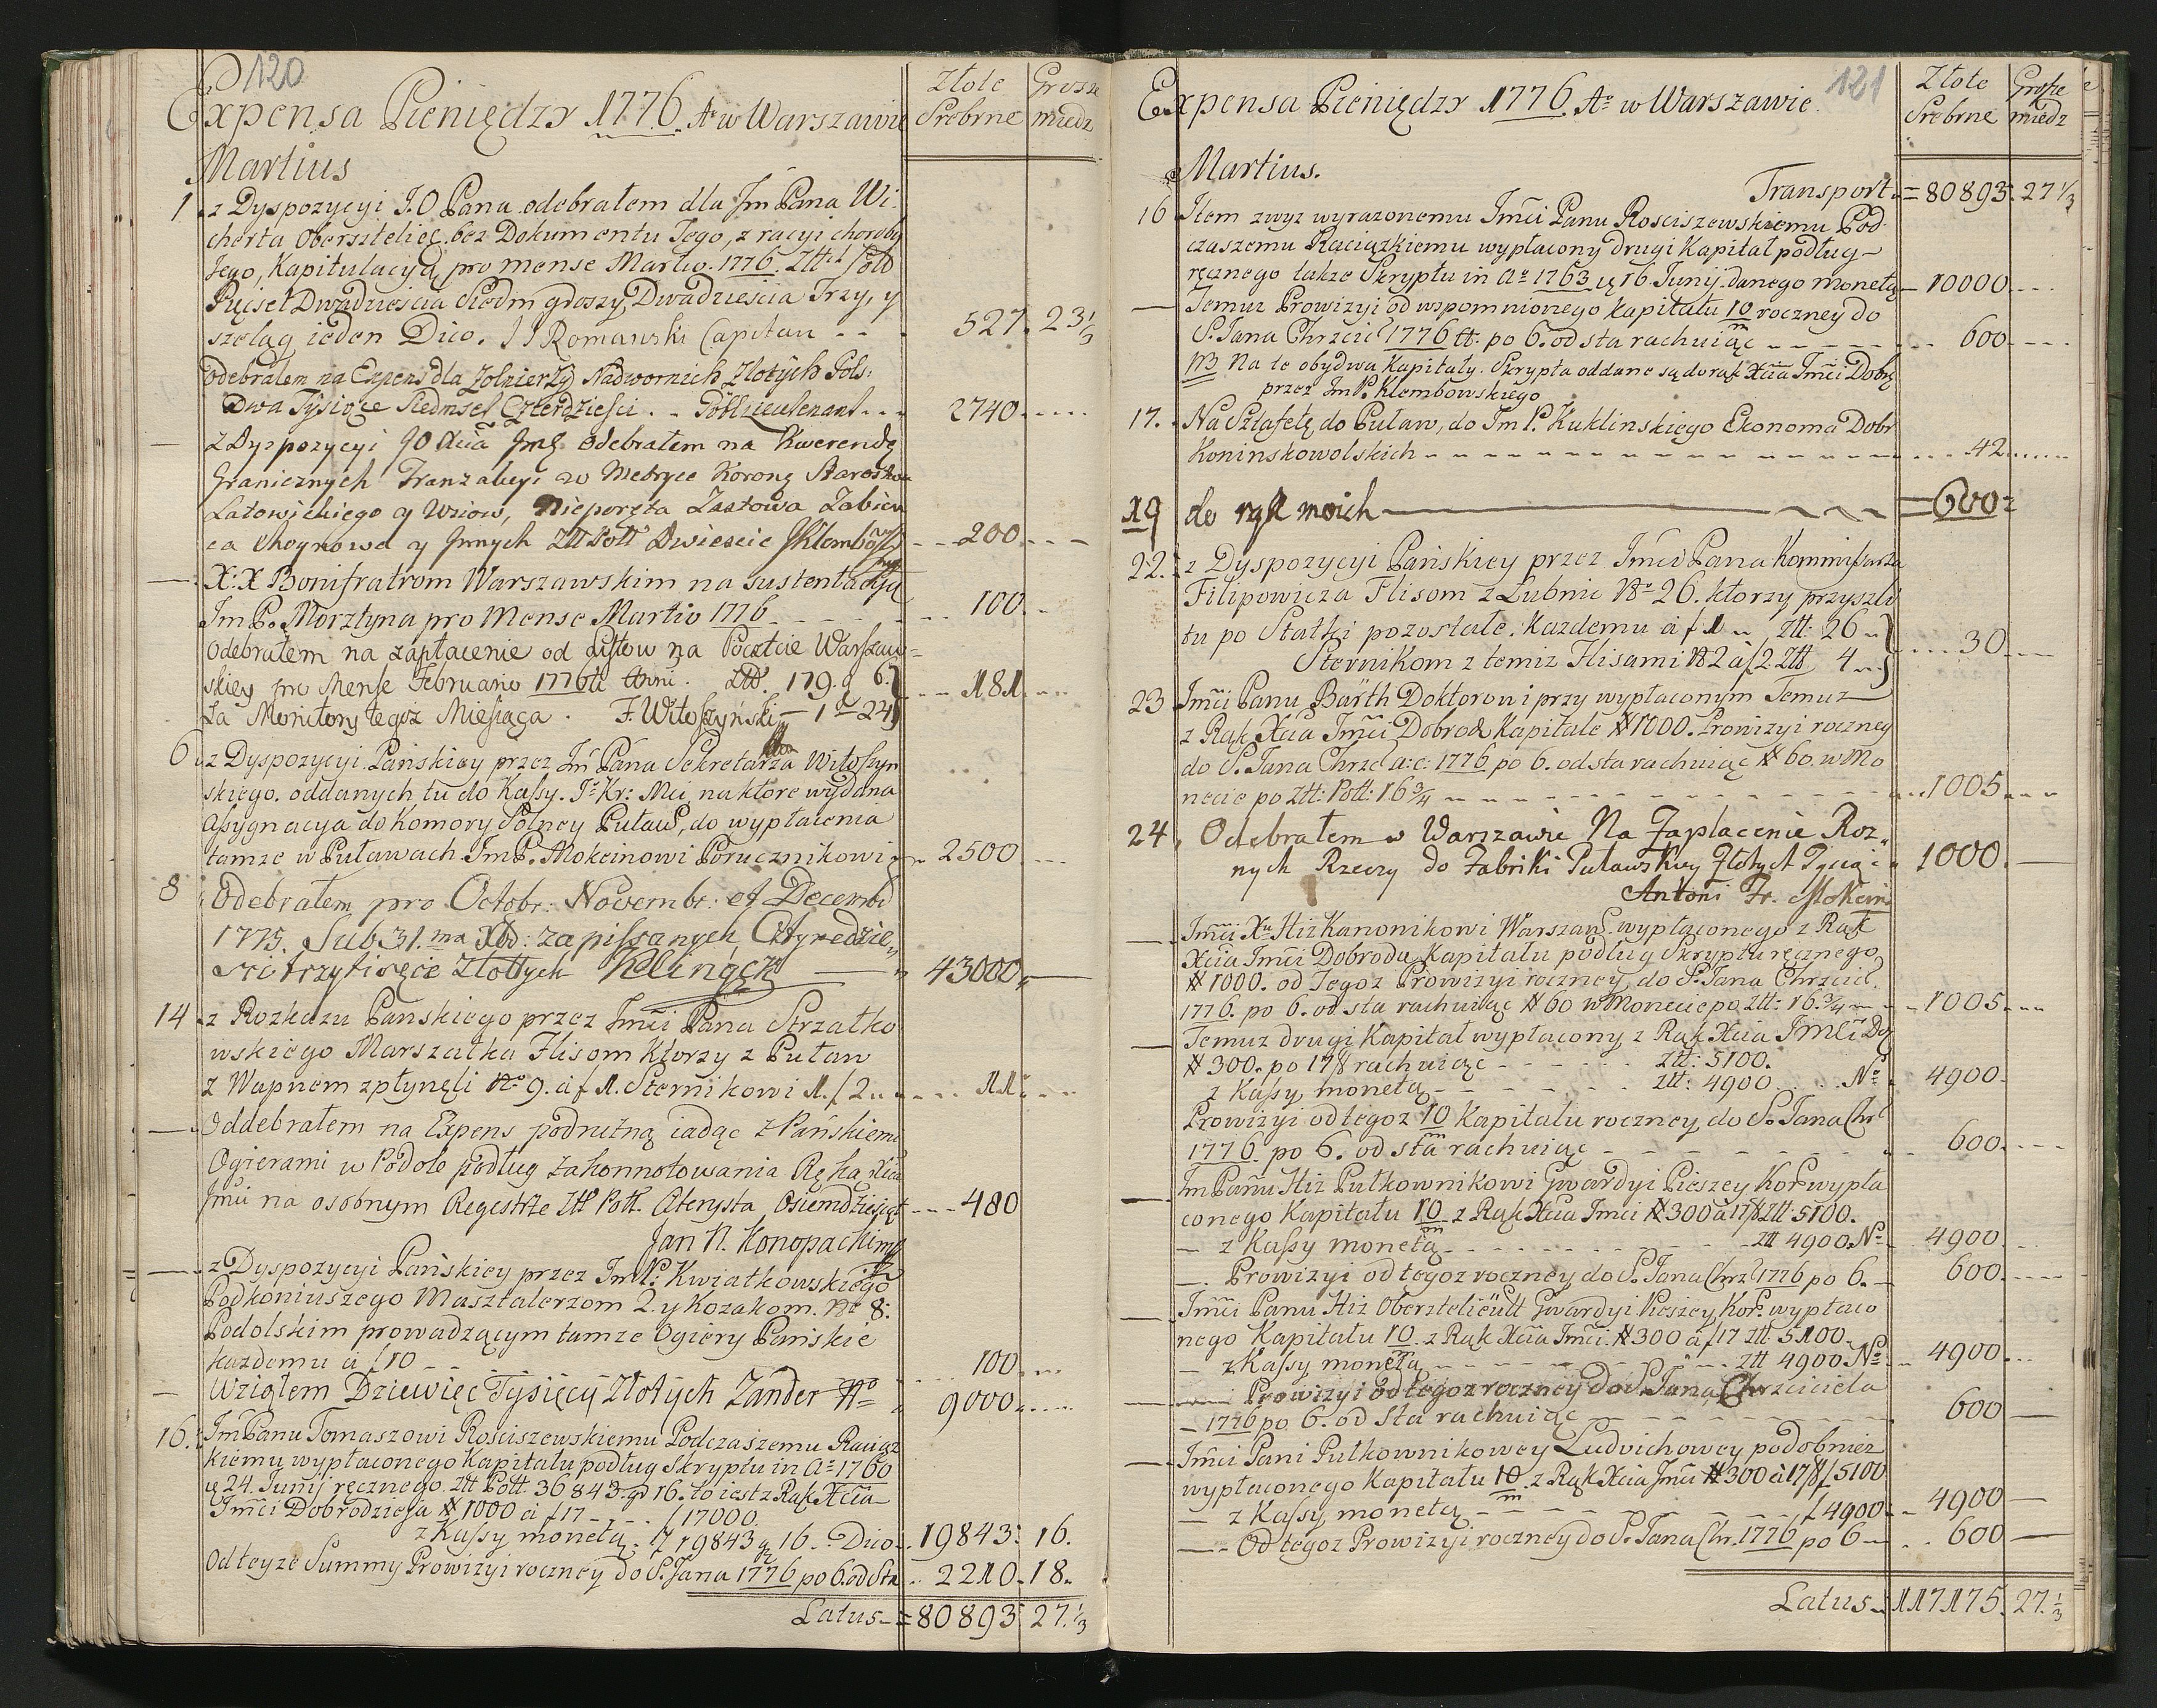 120
Expensa Pieniędzy 1776. Ao w Warszawie
Złote Srebrne
Grosze miedz
Martius
1. z Dyspozycyi J.O Pana odebrałem dla Jm Pana Wi-
cherta Obersztelięc. bez Dokumentu Jego, z racyi choroby
Jego, Kapitulacyą pro mense Martio 1776. Ztt
Pięcset Dwadzieścia Siedm groszy Dwadzieścia Trzy, y
szeląg ieden Dico. JJ Romanski Capitan - - - 527. 23 1/3
Odebrałem na Expens dla Zolnierzy Nadwornich Złotych Pols:
Dwa Tysiące Siedmset Czterdzieści . . - - - 2740 - - - -
Z Dyspozycyi JO Xcia Jmę odebrałem na Kwerendę
Granicznych Tranzakcyi w Metryce Korong Starostwa
Latowickiego y Wsiow, Nieporęta Zastowa Zabien
ca y Jnnych Ztt Poll Dwiescie - - 200 - - -
X:X Bonifratrom Warszawskim na sustentacyą
Jm P. Morztyna pro Mense Martio 1776 - - - - 100. - -
Odebrałem na zapłacenie od Listow na Poczcie Warszaw=
skiey pro Mense Februario 1776ti Anni. Ztt. 179. g 6.} - - - 181. - - -
Za Monitory tegoż Miesiąca . F. Witoszyński - 1 - 24}
6. z Dyspozycyi Pańskiey przez Jm Pana Sekretarza Witoszyn
skiego. oddanych tu do Kassy. J: Kr: Mci na ktore wydana
Assygnacya do Komory Solney Puław, do wypłacenia
tamze w Puławach Jm P. Mokcinowi Porucznikowi - - 2500 - - -
8. Odebrałem pro Octobr: Novembr: et Decembr
1775. Sub 31.ma Xbr: zapissanych Cztyredzie,,
sci trzy tisięcie Złottych Klingck — 43000 —
14. z Rozkazu Panskiego przez Jmci Pana Strzałko
wskiego Marszałka Flisom Ktorzy z Puław
z Wapnem zpłynęli No 9. á f 1. Sternikowi 1. f 2 . . - - - 11 - - -
— Oddebrałem na Expens podrużną iadąc z Pańskiemi
Ogierami w Podole podług zakonnotowania Ręką Xcia
Jmci na osobnym Regestrze Ztt Poll. Cterysta Osiemdziesiąt - - - 480
Jan N. Konopacki mp
— z Dyspozycyi Pańskiey przez Jm P. Kwiatkowskiego
Podkoniuszego Masztalerzom 2. y Kozakom. No 8:
Podolskim prowadzącym tamze Ogiery Pańskie
kazdemu á f 10 - - - - 100 - - -
— Wziąłem Dziewięc Tysięcy Złotych Zander No 9000 - - - -
16. Jm Panu Tomaszowi Rościszewskiemu Podczaszemu Raciąz
kiemu wypłaconego Kapitału podług Skryptu in Ao 1760
ię 24. Junij ręcznego. Ztt Pott. 36843. gr 16. to iest z Rąk Xcia
Jmci Dobrodzieja # 1000 á f 17 - - - f 17000
z Kassy monetą. f 19843 g 16. Dico - 19843: 16.
Od teyze Summy Prowizyi roczney do S. Jana 1776 po 6. od Sta - 2210. 18.
Latus = 80893 27. 1/3
121
Expensa Pieniędzy 1776. Ao w Warszawie.
Złote Srebrne
Grosze miedz
Martius.
Transport. = 80893. 27 1/3
16 Item zwyz wyrazonemu Jmci Panu Rosciszewskiemu Pod-
czaszemu Raciązkiemu wypłacony drugi Kapitał podług -
ręcznego takze Skryptu in Ao 1763 ię 16. Junij danego monetą - 10000 - - -
— Temuz Prowizyi od wspomnionego Kapitału 10/m roczney do
S. Jana Chrzcic 1776. po 6. od sta rachuiąc - - - - - 600 - - - -
NB Na te obydwa Kapitały. Skrypta oddane są do rąk Xcia Jmci Dobr
przez Jm P. Klembowskiego
17. Na Sztafetę do Puław, do Jm P. Kuklinskiego Ekonoma Dobr
Koninskowolskich - - - - - - - - - - - - 42 - - - -
19 do rąk moich — — = 600 =
22. z Dyspozycyi Pańskiey przez Jmci Pana Kommissarza
Filipowicza Flisom z Lubnic No 26. ktorzy przyszli
tu po Statki pozostałe. Kazdemu á f 1 ,, Ztt: 26 ,,} - - - 30 - - -
Sternikom z temiz Flisami No 2 á f 2 Ztt 4 ,,}
23 Jmci Panu Barth Doktorowi przy wypłaconym Temuz
z Rąk Xcia Jmci Dobrod Kapitale # 1000. Prowizyi roczney
do S. Jana Chrzc a: c: 1776 po 6. od sta rachuiąc # 60. w Mo
necie po Ztt: Pott: 16 3/4 - - - - - - - - - - 1005 - - -
24. Odebrałem w Warszawie Na Zapłacenie Roz,,
nych Rzeczy do Fabriki Puławskiey Złotych Tysiąc - 1000. —
Antoni Fr. Mokcin
— Jmci Xu Hiz Kanonikowi Warszaws. wypłaconego z Rąk
Xcia Jmci Dobrodz Kapitału podług Skryptu ręcznego
# 1000. od Tegoz Prowizyi roczney do S. Jana Chrzcic.
1776. po 6. od sta rachuiąc # 60 w Monecie po Ztt: 16. 3/4 - - 1005 - - -
— Temuz drugi Kapitał wypłacony z Rąk Xcia JMCi Do
# 300. po 17 f rachuiąc - - - - - Ztt: 5100.
z Kassy monetą - - - - - Ztt: 4900 . . . No 4900 -
Prowizyi od tegoz 10/m Kapitału roczney do S. Jana Chr
1776. po 6. od sta rachuiąc - - - - - - - 600 - - - -
— Jm Panu Hiz Pułkownikowi Gwardyi Pieszey Kor. wypła
conego Kapitału 10/m z Rąk Xcia Jmci # 300 á 17 f Ztt: 5100.
— z Kassy monetą - - - - - - - - Ztt 4900. No - 4900 - -
— Prowizyi od tegoz roczney do S. Jana Chrz 1776 po 6. - 600 - - - -
— Jmci Panu Hiz Oberszteliëutt Gwardyi Pieszey Kor. wypłaco
nego Kapitału 10/m z Rąk Xcia Jmci. # 300 á f 17 Ztt. 5100.
— z Kassy monetą - - - - - - - Ztt 4900. No - 4900 - - -
— Prowizyi od tegoz roczney do S. Jana Chrzciciela
— 1776 po 6. od Sta rachuiąc - - - - - - - 600 —
— Jmci Pani Pułkownikowey Ludvichowey podobniez
wypłaconego Kapitału 10/m z Rąk Xcia Jmci # 300 á 17 f f 5100
— z Kassy monetą - - - - - - - f 4900 - - 4900 —
— Od tegoz Prowizyi roczney do S. Jana Chr. 1776 po 6 - - 600 —
Latus - 117175. 27. 1/3